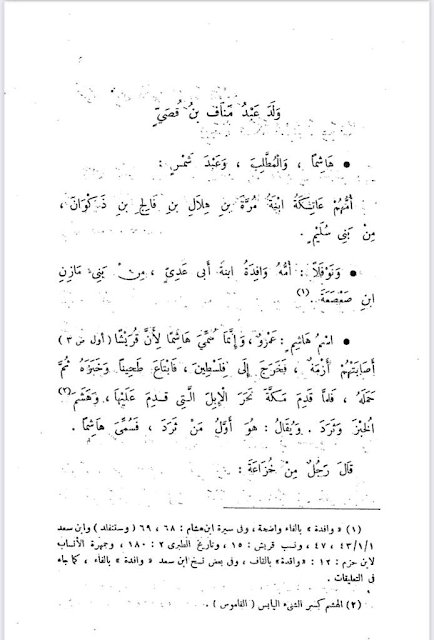 وَلَدَ عَبْدُ مَنَافِ بنُ قُصَيٍّ
• هَاشِمًا ، وَالْمُطَّلِبَ ، وَعَبْدَ شَمْسٍ :
أُمُّهُمْ عَاتِكَةُ ابْنَةُ مُرَّةَ بنِ هِلَالِ بنِ فَالِجِ بنِ ذَكْوَانَ ،
مِنْ بَنِي سُلَيْمٍ .
• وَنَوْفَلًا : أُمُّهُ وَافِدَةُ ابنةُ أبى عَدِيٍّ ، مِنْ بَنِي مَازِنِ
ابنِ صَعْصَعَةَ . (١)
• اسْمُ هَاشِمٍ : عَمْرٌو ، وَإِنَّمَا سُمِّيَ هَاشِمًا لِأَنَّ قُرَيْشًا ( أول ص ٣ )
أَصَابَتْهُمْ أَزْمَةٌ ، فَخَرَجَ إِلَى فِلَسْطِينَ ، فَابْتَاعَ طَحِينًا وَخَبَزَهُ ثُمَّ
حَمَلَهُ ، فَلَمَّا قَدِمَ مَكَّةَ نَحَرَ الْإِبِلَ الَّتِي قَدِمَ عَلَيْهَا ، وَهَشَمَ (٢)
الْخُبْزَ وَثَرَدَ . وَيُقَالُ : هُوَ أَوَّلُ مَنْ ثَرَدَ ، فَسُمِّيَ هَاشِمًا .
قَالَ رَجُلٌ مِنْ خُزَاعَةَ :
(١) « وافدة » بالفاء واضحة ، وفى سيرة ابن هشام : ٦٨ ، ٦٩ ( وستنفلد ) وابن سعد
٤٣/١/١ ، ٤٧ ، ونسب قريش : ١٥ ، وتاريخ الطبرى ٢ : ١٨٠ ، وجمهرة الأنساب
لابن حزم : ١٢ : « واقدة » بالقاف ، وفى بعض نسخ ابن سعد « وافدة » بالفاء ، كما جاء
فى التعليقات .
(٢) الهشم كسر الشىء اليابس ( القاموس ) .